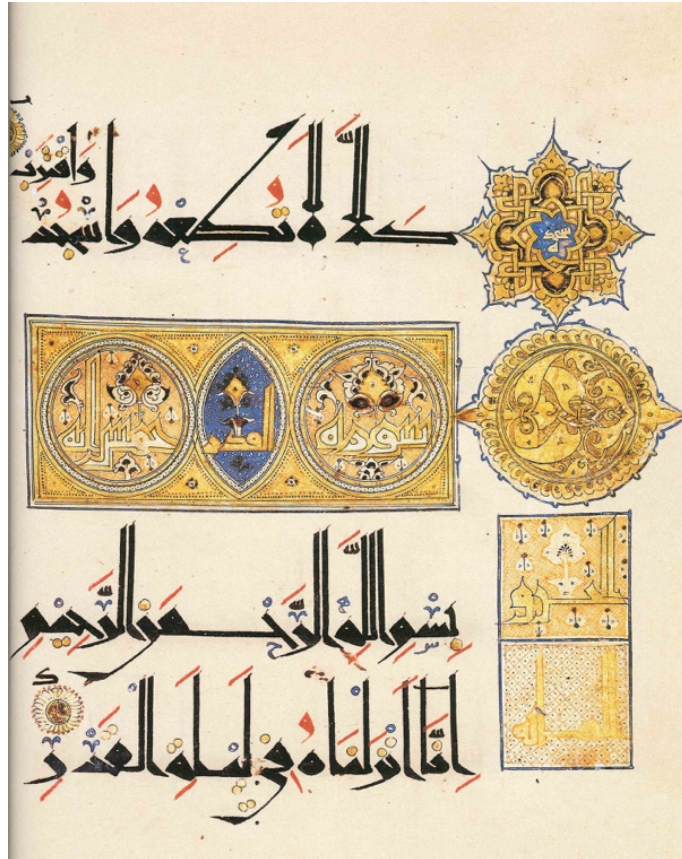 كَلَّا لَا تُطِعْهُ وَاسْجُدْ وَاقْتَرِبْ
سورة القدر خمس ايه
بِسْمِ اللَّهِ الرَّحْمَنِ الرَّحِيمِ
اِنَّا اَنْزَلْنَاهُ فِي لَيْلَةِ الْقَدْرِ